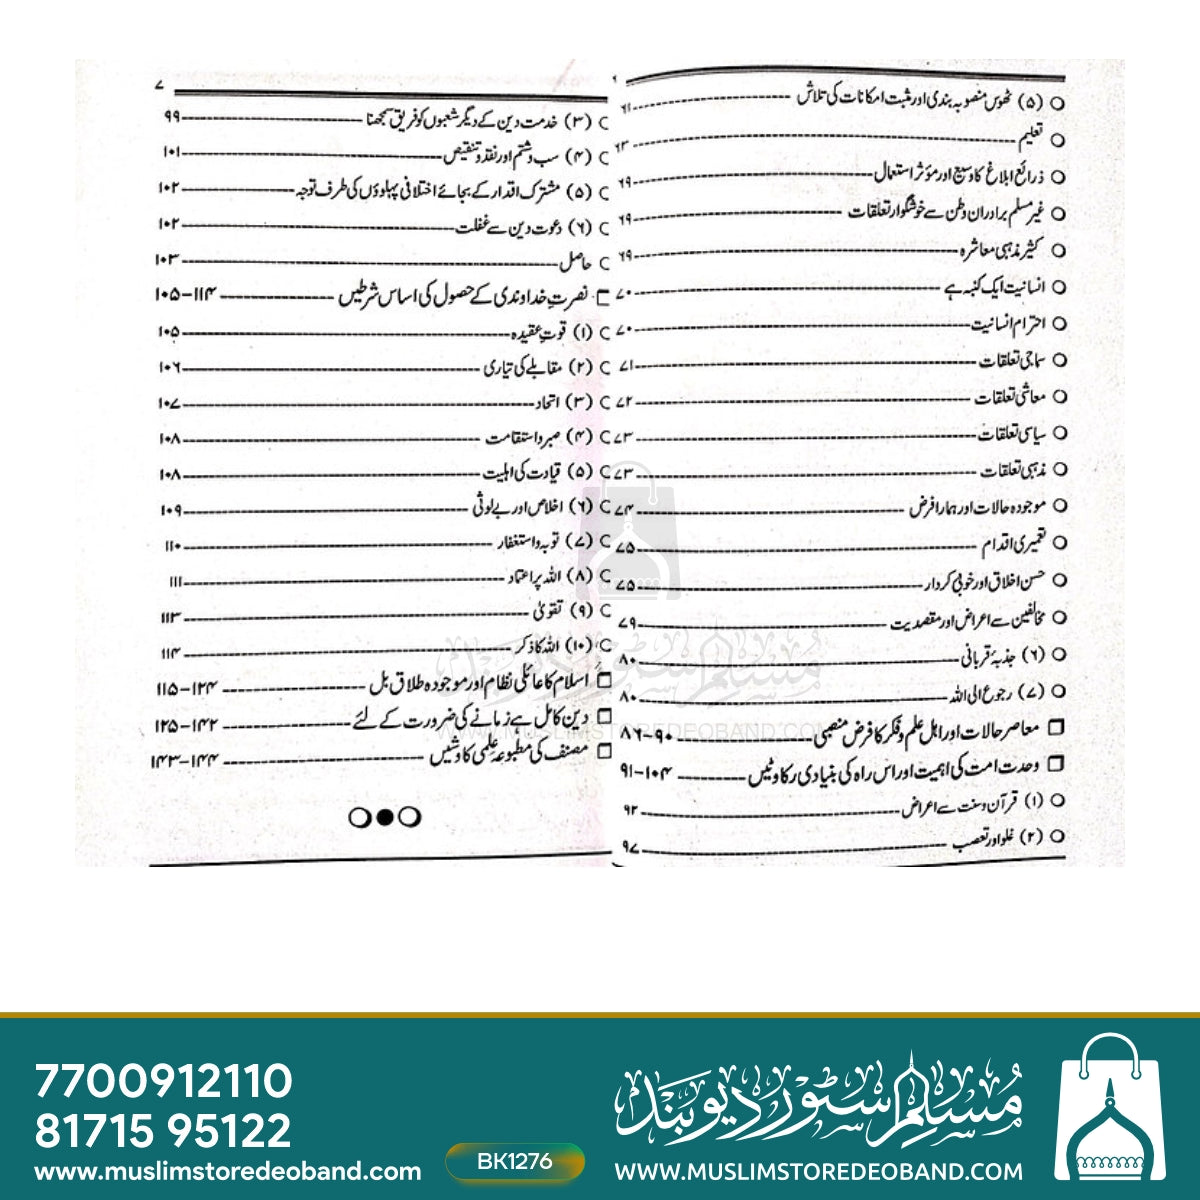 (۵) ٹھوس منصوبہ بندی اور مثبت امکانات کی تلاش ۶۱
تعلیم ۶۳
ذرائع ابلاغ کا وسیع اور مؤثر استعمال ۶۹
غیر مسلم برادران وطن سے خوشگوار تعلقات ۶۹
کثیر مذہبی معاشرہ ۶۹
انسانیت ایک کنبہ ہے ۷۰
احترام انسانیت ۷۰
سماجی تعلقات ۷۱
معاشی تعلقات ۷۲
سیاسی تعلقات ۷۳
مذہبی تعلقات ۷۳
موجودہ حالات اور ہمارا فرض ۷۴
تعمیری اقدام ۷۵
حسن اخلاق اور خوبیٔ کردار ۷۵
مخالفین سے اعراض اور مقصدیت ۷۹
(۶) جذبۂ قربانی ۸۰
(۷) رجوع الی اللہ ۸۰
معاصر حالات اور اہل علم وفکر کا فرض منصبی ۸۶-۹۰
وحدت امت کی اہمیت اور اس راہ کی بنیادی رکاوٹیں ۹۱-۱۰۴
(۱) قرآن وسنت سے اعراض ۹۲
(۲) غلو اور تعصب ۹۷
۷
(۳) خدمت دین کے دیگر شعبوں کو فریق سمجھنا ۹۹
(۴) سب وشتم اور نقد وتنقیص ۱۰۱
(۵) مشترک اقدار کے بجائے اختلافی پہلوؤں کی طرف توجہ ۱۰۲
(۶) دعوت دین سے غفلت ۱۰۲
حاصل ۱۰۳
نصرتِ خداوندی کے حصول کی اساس شرطیں ۱۰۵-۱۱۴
(۱) قوتِ عقیدہ ۱۰۵
(۲) مقابلے کی تیاری ۱۰۶
(۳) اتحاد ۱۰۷
(۴) صبر واستقامت ۱۰۸
(۵) قیادت کی اہلیت ۱۰۸
(۶) اخلاص اور بے لوثی ۱۰۹
(۷) توبہ واستغفار ۱۱۰
(۸) اللہ پر اعتماد ۱۱۱
(۹) تقویٰ ۱۱۳
(۱۰) اللہ کا ذکر ۱۱۴
اسلام کا عائلی نظام اور موجودہ طلاق بل ۱۱۵-۱۲۴
دین کامل ہے زمانے کی ضرورت کے لئے ۱۲۵-۱۴۲
مصنف کی مطبوعہ علمی کاوشیں ۱۴۳-۱۴۴
مسلم سٹور دیوبند
WWW.MUSLIMSTOREDEOBAND.COM
7700912110
81715 95122
www.muslimstoredeoband.com
BK1276
مسلم سٹور دیوبند
WWW.MUSLIMSTOREDEOBAND.COM